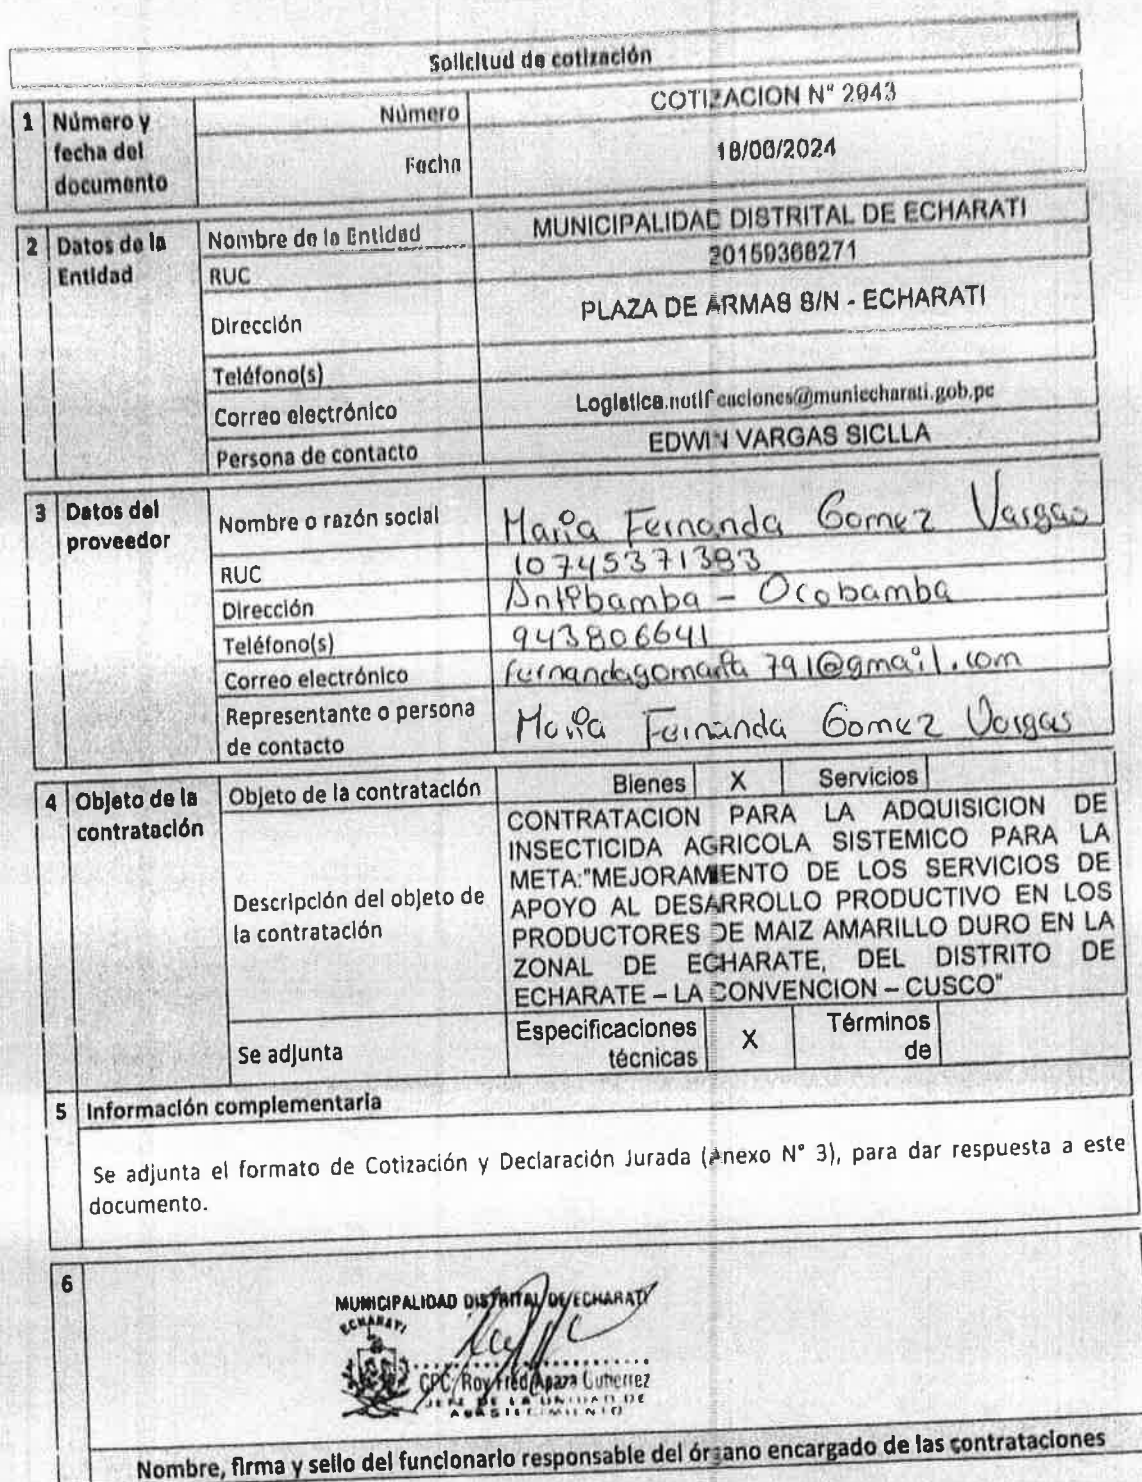 Solicitud de cotización
1 Número y fecha del documento
Número COTIZACION N° 2943
Fecha 18/06/2024
2 Datos de la Entidad
Nombre de la Entidad MUNICIPALIDAD DISTRITAL DE ECHARATI
RUC 20159368271
Dirección PLAZA DE ARMAS S/N - ECHARATI
Teléfono(s)
Correo electrónico Logistica.notificaciones@municcharati.gob.pe
Persona de contacto EDWIN VARGAS SICLLA
3 Datos del proveedor
Nombre o razón social Maria Fernanda Gomez Vargas
RUC 10745371383
Dirección Antibamba - Ocobamba
Teléfono(s) 943806641
Correo electrónico
Representante o persona de contacto Maria Fernanda Gomez Vargas
4 Objeto de la contratación
Objeto de la contratación Bienes X Servicios
Descripción del objeto de la contratación
CONTRATACION PARA LA ADQUISICION DE
INSECTICIDA AGRICOLA SISTEMICO PARA LA
META:"MEJORAMIENTO DE LOS SERVICIOS DE
APOYO AL DESARROLLO PRODUCTIVO EN LOS
PRODUCTORES DE MAIZ AMARILLO DURO EN LA
ZONAL DE ECHARATE, DEL DISTRITO DE
ECHARATE – LA CONVENCION – CUSCO"
Se adjunta Especificaciones técnicas X Términos de
5 Información complementaria
Se adjunta el formato de Cotización y Declaración Jurada (Anexo N° 3), para dar respuesta a este
documento.
6
MUNICIPALIDAD DISTRITAL DE ECHARATI
ECHARATI
CPC Roy Fred Apaza Gutierrez
JEFE DE LA UNIDAD DE
ABASTECIMIENTO
Nombre, firma y sello del funcionario responsable del órgano encargado de las contrataciones